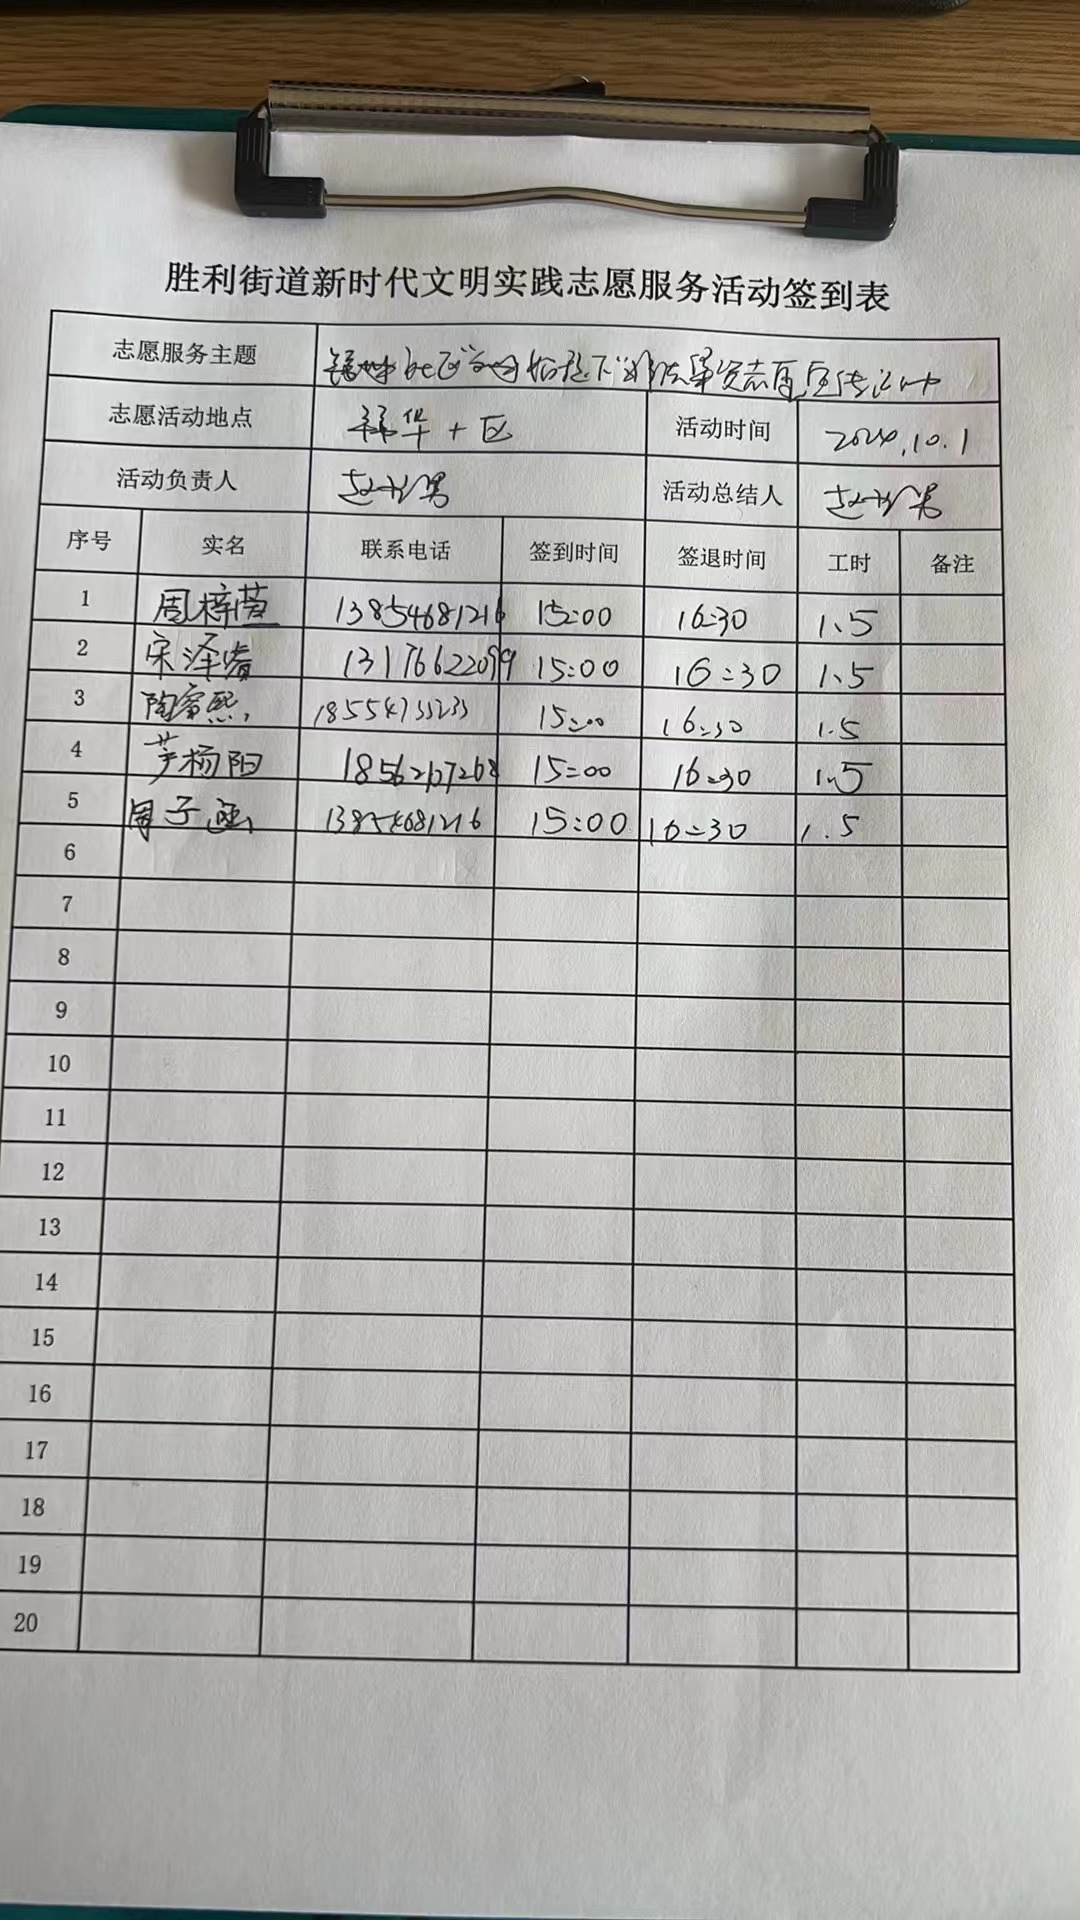 胜利街道新时代文明实践志愿服务活动签到表
志愿服务主题
志愿活动地点 华 区 活动时间 2024.10.1
活动负责人 活动总结人
序号 实名 联系电话 签到时间 签退时间 工时 备注
1 周梓萱 13854681216 15:00 16:30 1.5
2 宋泽睿 13176622099 15:00 16:30 1.5
3 陶熙 15:00 16:30 1.5
4 杨阳 15:00 16:30 1.5
5 周子涵 13854681216 15:00 16:30 1.5
6
7
8
9
10
11
12
13
14
15
16
17
18
19
20